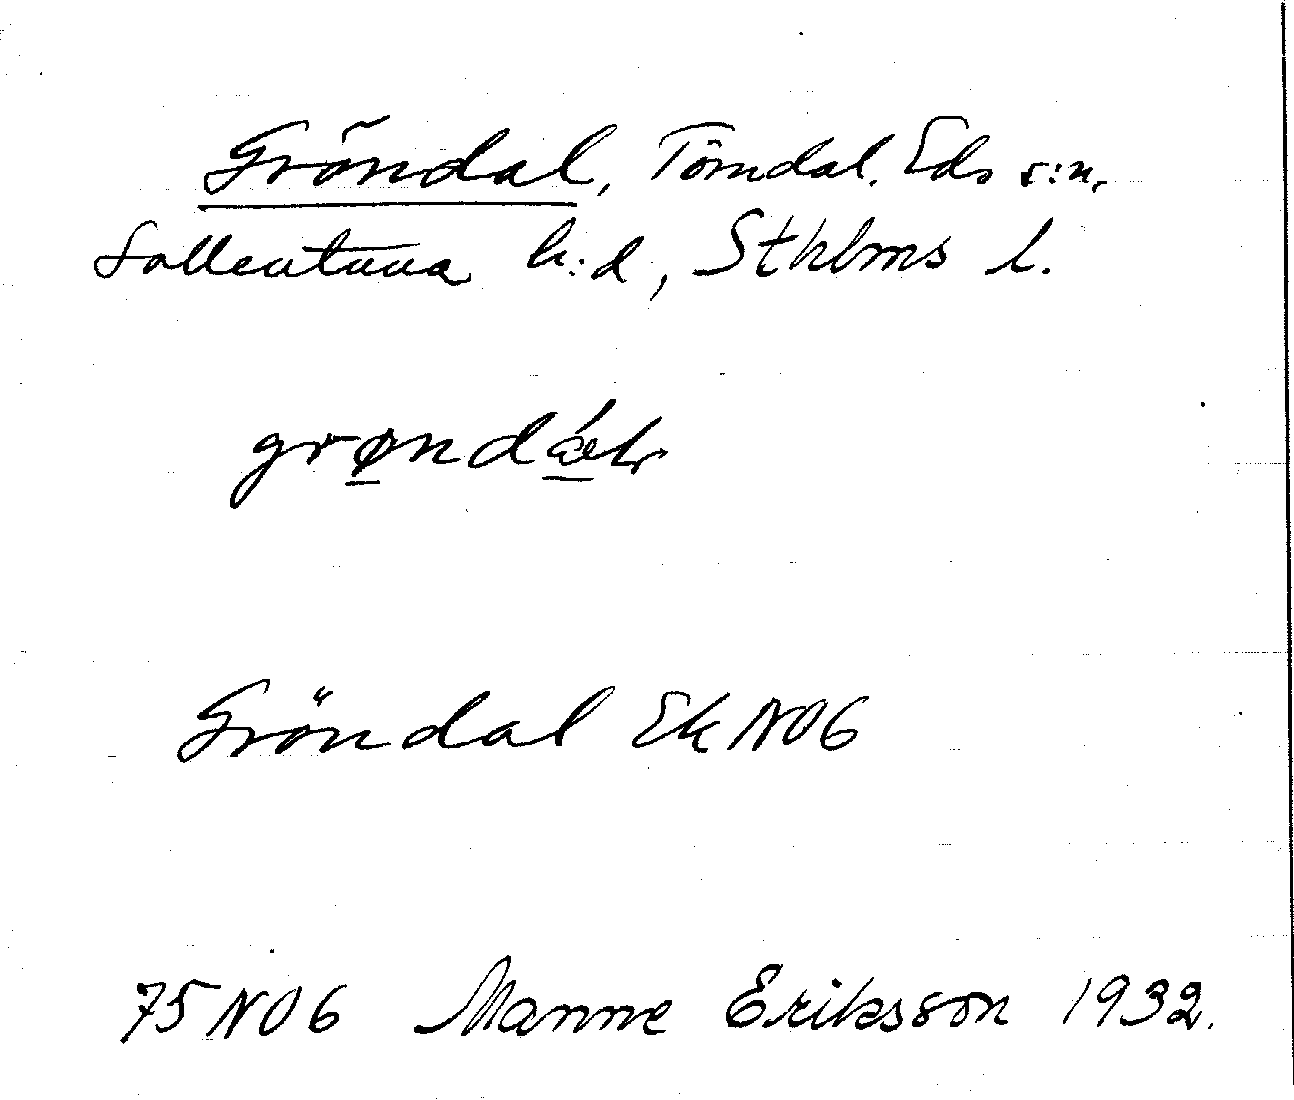 Gröndal, Törndal. Eds s:n,
Sollentuna h:d, Sthlms l.
Gröndal Ek NO6
75 NO6 Manne Eriksson 1932.